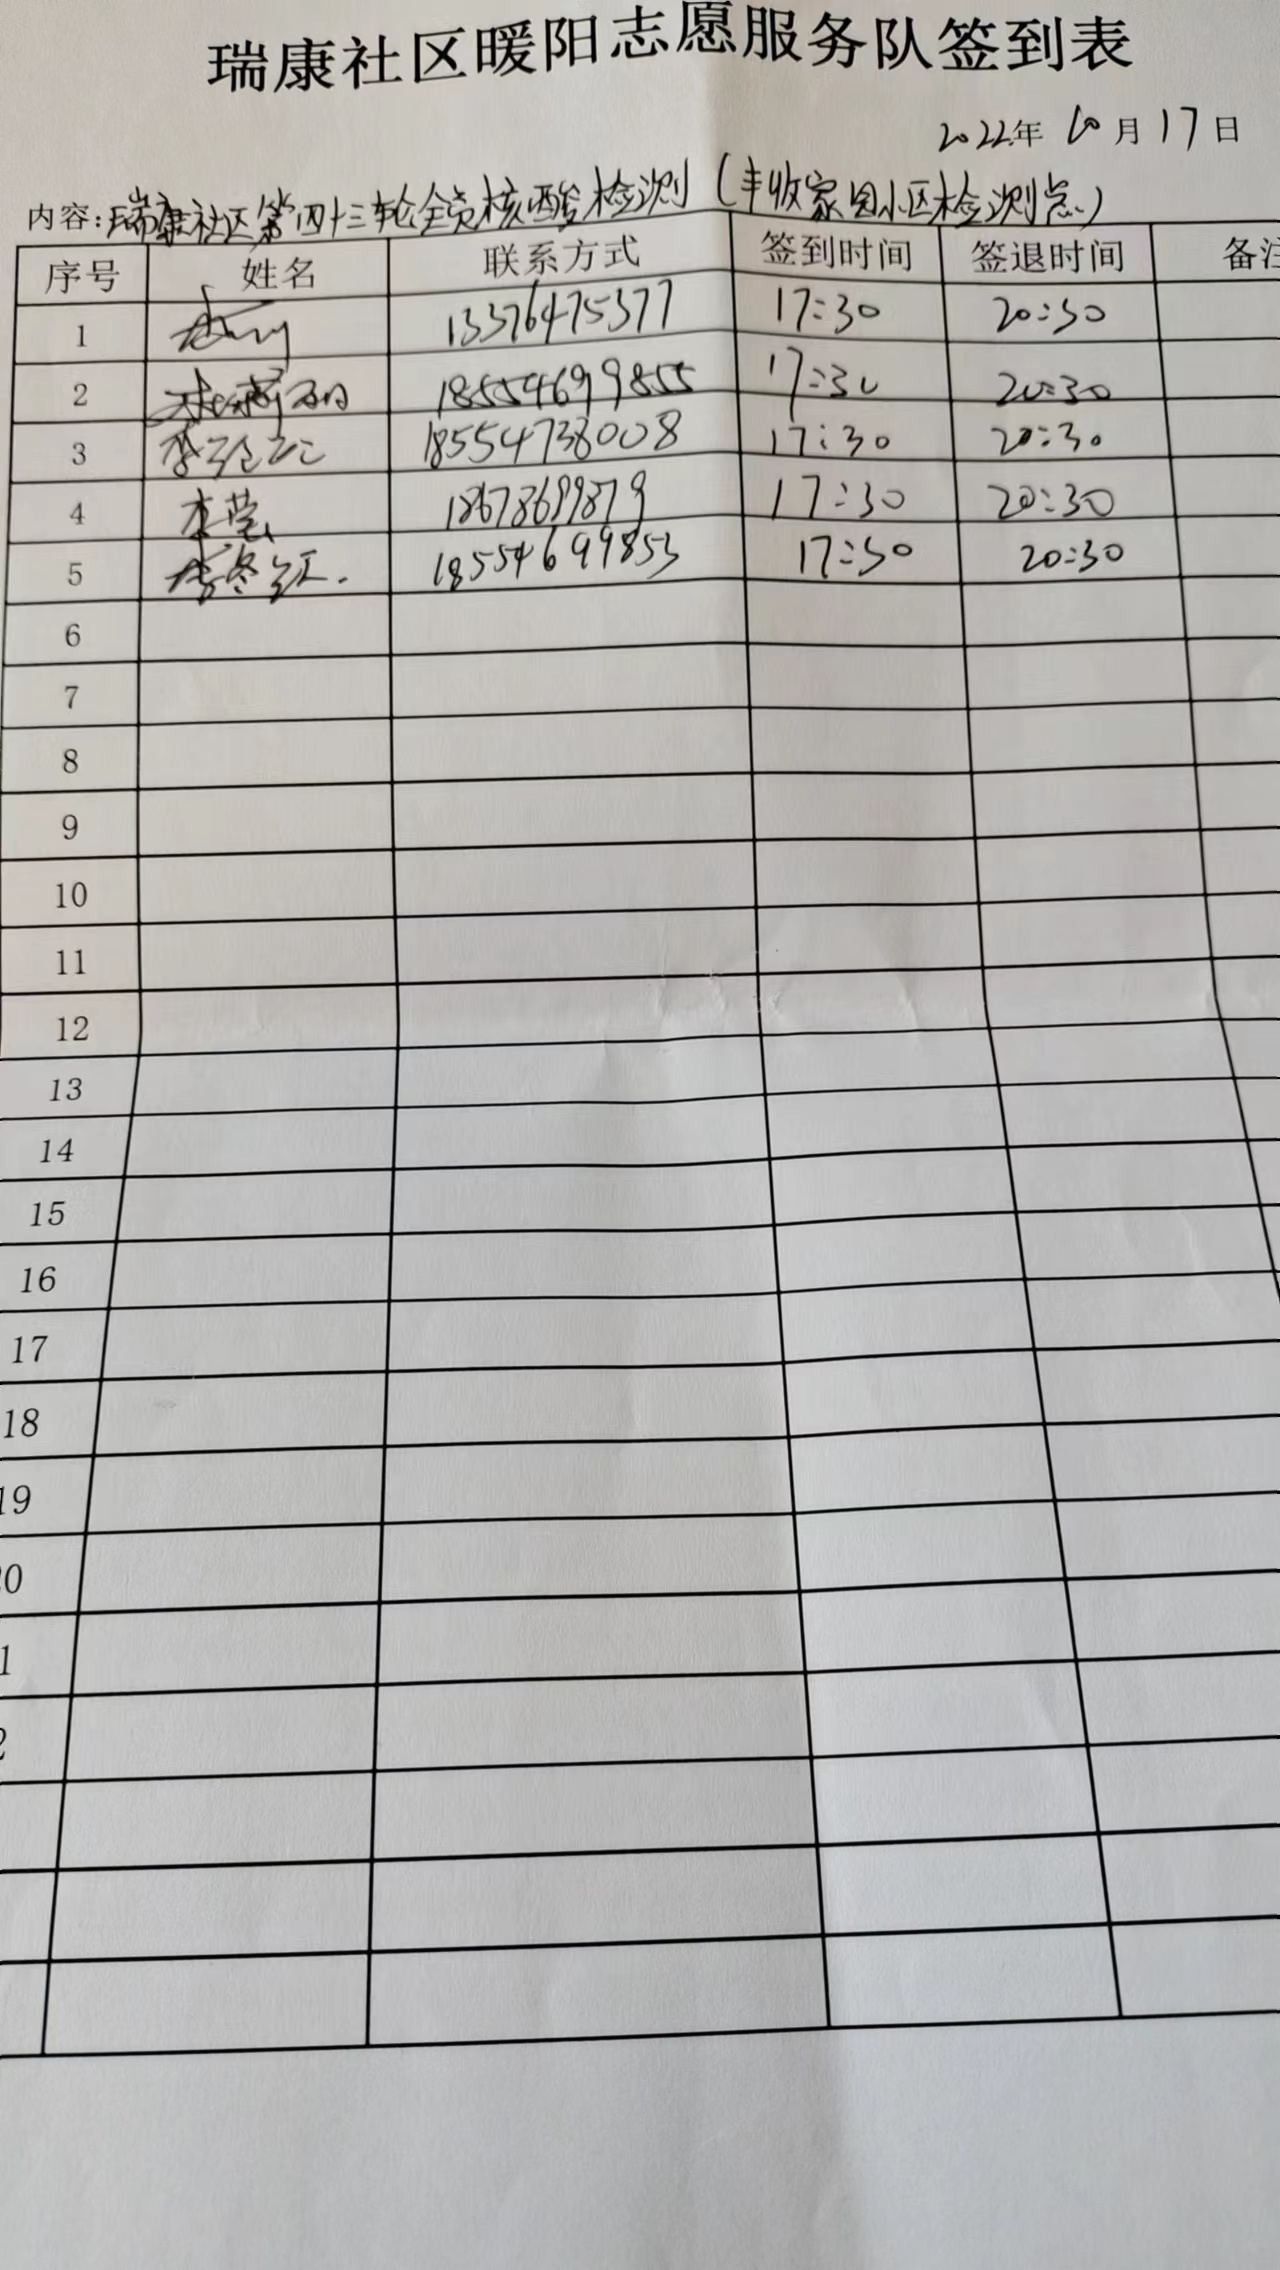 瑞康社区暖阳志愿服务队签到表
2022年10月17日
内容:瑞康社区第四十三轮全员核酸检测(丰收家园小区检测点)
序号 姓名 联系方式 签到时间 签退时间 备注
1 13376475377 17:30 20:30
2 18554699855 17:30 20:30
3 18554738008 17:30 20:30
4 李莹 18678699879 17:30 20:30
5 李冬红. 18554699853 17:30 20:30
6
7
8
9
10
11
12
13
14
15
16
17
18
19
20
1
2